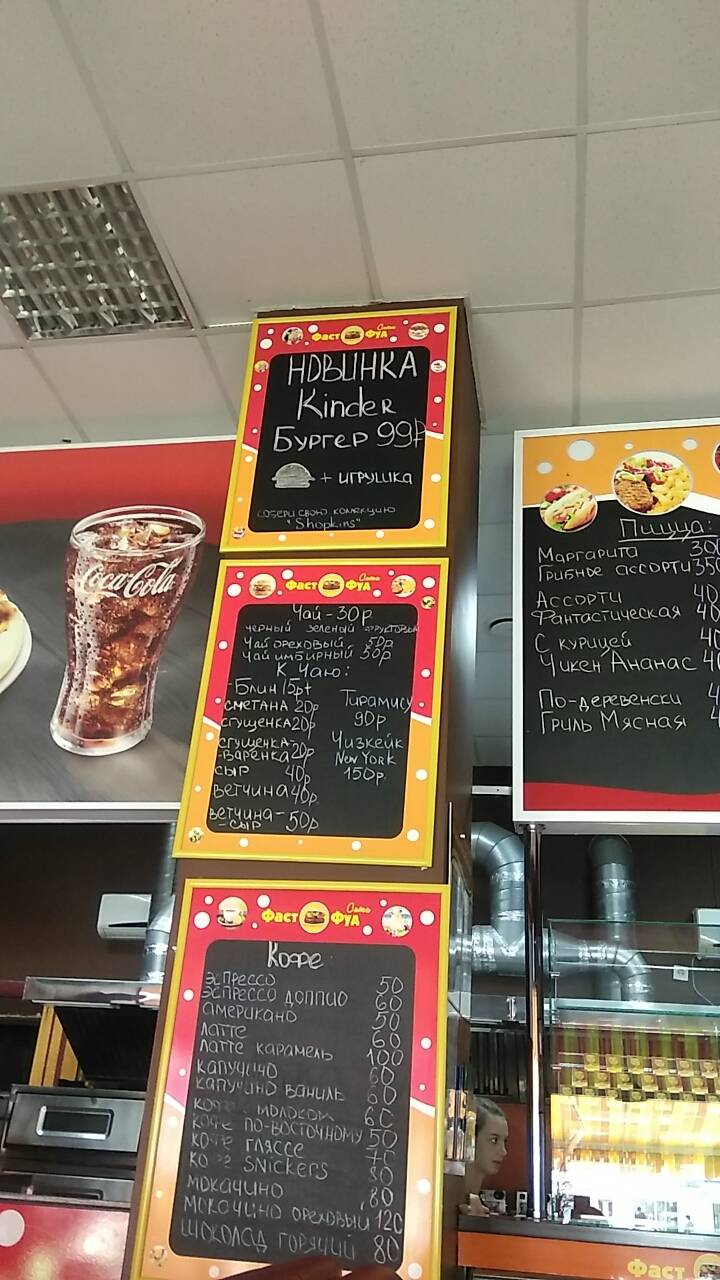 Фаст Фуд Сити
НОВИНКА
Kinder
Бургер 99₽
+ ИГРУШКА
СОБЕРИ СВОЮ КОЛЛЕКЦИЮ
"Shopkins"
Coca-Cola
Фаст Фуд
Чай-30р
черный зеленый фруктовый
Чай ореховый 50р
Чай имбирный 50р
К Чаю:
-Блин 15р+
сметана 20р
сгущенка 20р
сгущенка-
-варенка 20р
сыр 40р
ветчина 40р
ветчина-
-сыр 50р
Тирамису
90р
Чизкейк
New York
150р
Фаст Фуд
Кофе
эспрессо 50
эспрессо доппио 60
американо 50
латте 60
латте карамель 100
капучино 60
капучино ваниль 60
молоком 60
кофе по-восточному 50
кофе гляссе 70
Snickers 80
мокачино 80
мокачино ореховый 120
шоколад горячий 80
Пицца:
Маргарита 300
Грибное ассорти 350
Ассорти
Фантастическая
С курицей
Чикен Ананас
По-деревенски
Гриль Мясная
Фаст